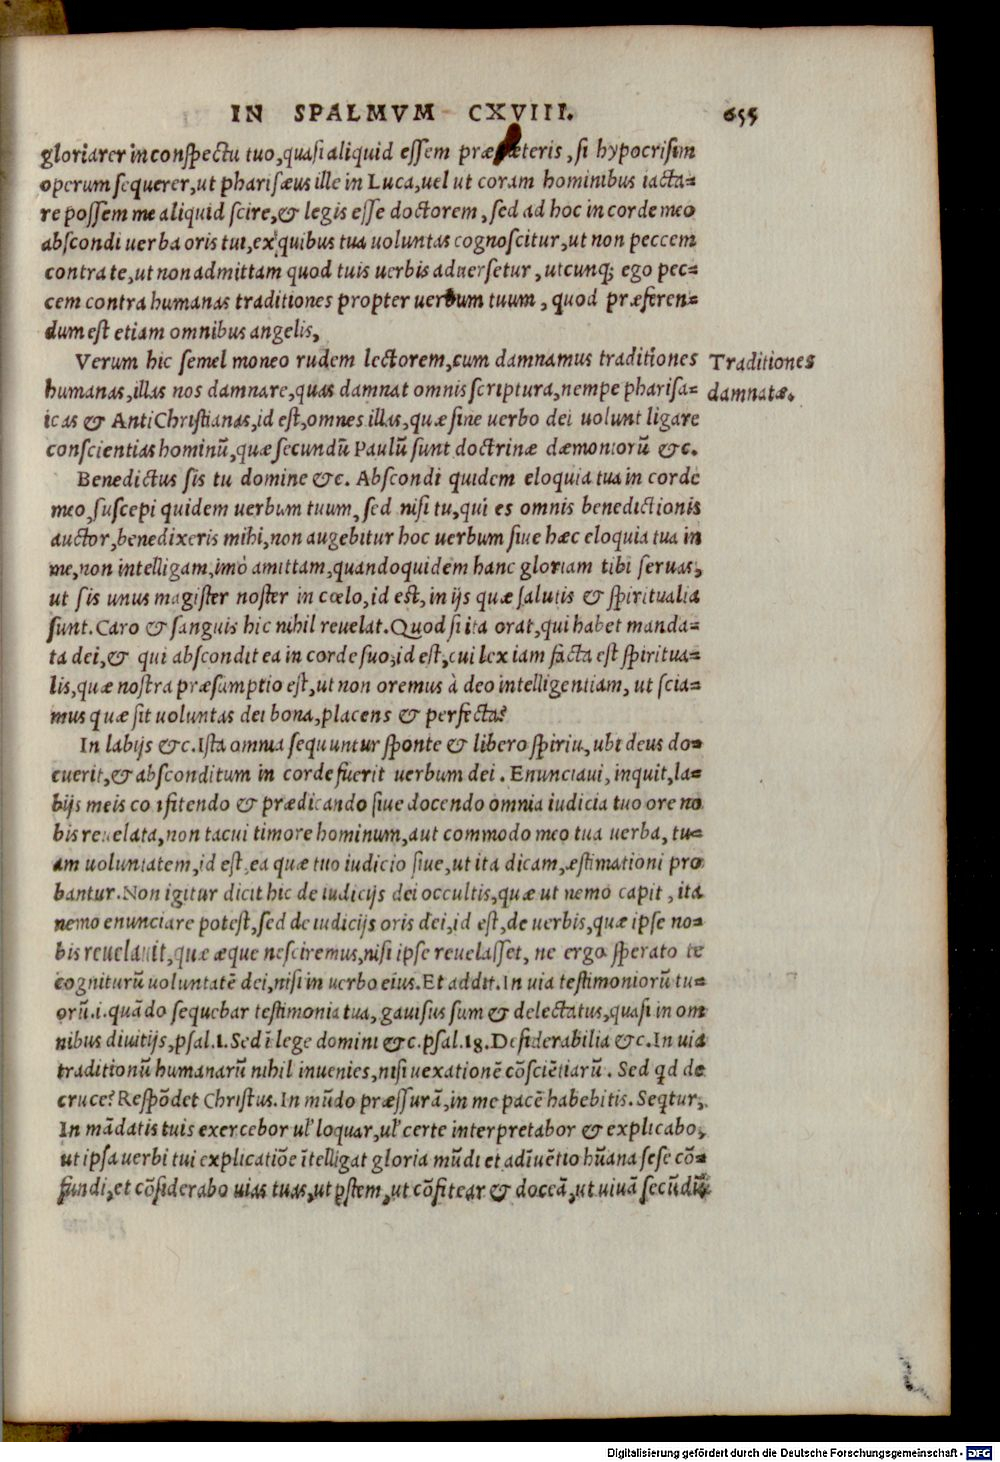 IN SPALMVM CXVIII. 655
gloriarer in conspectu tuo, quasi aliquid essem præ cæteris, si hypocrisim
operum sequerer, ut pharisæus ille in Luca, uel ut coram hominibus iacta=
re possem me aliquid scire, & legis esse doctorem, sed ad hoc in corde meo
abscondi uerba oris tui, ex quibus tua uoluntas cognoscitur, ut non peccem
contra te, ut non admittam quod tuis uerbis aduersetur, utcunq; ego pec=
cem contra humanas traditiones propter uerbum tuum, quod præferen=
dum est etiam omnibus angelis,
Verum hic semel moneo rudem lectorem, cum damnamus traditiones
Traditiones
humanas, illas nos damnare, quas damnat omnis scriptura, nempe pharisa=
damnatæ.
icas & AntiChristianas, id est, omnes illas, quæ sine uerbo dei uolunt ligare
conscientias hominū, quæ secundū Paulū sunt doctrinæ dæmoniorū &c.
Benedictus sis tu domine &c. Abscondi quidem eloquia tua in corde
meo, suscepi quidem uerbum tuum, sed nisi tu, qui es omnis benedictionis
auctor, benedixeris mihi, non augebitur hoc uerbum siue hæc eloquia tua in
me, non intelligam, imò amittam, quandoquidem hanc gloriam tibi seruas,
ut sis unus magister noster in cœlo, id est, in ijs quæ salutis & spiritualia
sunt. Caro & sanguis hic nihil reuelat. Quod si ita orat, qui habet manda=
ta dei, & qui abscondit ea in corde suo, id est, cui lex iam facta est spiritua=
lis, quæ nostra præsumptio est, ut non oremus à deo intelligentiam, ut scia=
mus quæ sit uoluntas dei bona, placens & perfecta?
In labijs &c. Ista omnia sequuntur sponte & libero spiriu, ubi deus do=
cuerit, & absconditum in corde fuerit uerbum dei. Enunciaui, inquit, la=
bijs meis confitendo & prædicando siue docendo omnia iudicia tuo ore no
bis reuelata, non tacui timore hominum, aut commodo meo tua uerba, tu=
am uoluntatem, id est, ea quæ tuo iudicio siue, ut ita dicam, æstimationi pro
bantur. Non igitur dicit hic de iudicijs dei occultis, quæ ut nemo capit, ita
nemo enunciare potest, sed de iudicijs oris dei, id est, de uerbis, quæ ipse no=
bis reuelauit, quæ æque nesciremus, nisi ipse reuelasset, ne ergo sperato te
cogniturū uoluntatē dei, nisi in uerbo eius. Et addit. In uia testimoniorū tu=
orū. i. quādo sequebar testimonia tua, gauisus sum & delectatus, quasi in om
nibus diuitijs, psal. 1. Sed ī lege domini &c. psal. 18. Desiderabilia &c. In uia
traditionū humanarū nihil inuenies, nisi uexationē cōsciētiarū. Sed qd de
cruce? Respōdet Christus. In mūdo præssurā, in me pacē habebitis. Seqtur,
In mādatis tuis exercebor ul' loquar, ul' certe interpretabor & explicabo,
ut ipsa uerbi tui explicatiōe ītelligat gloria mūdi et adīuētio hūana sese cō=
fundi, et cōsiderabo uias tuas, ut pstem, ut cōfitear & doceā, ut uiuā secūdū